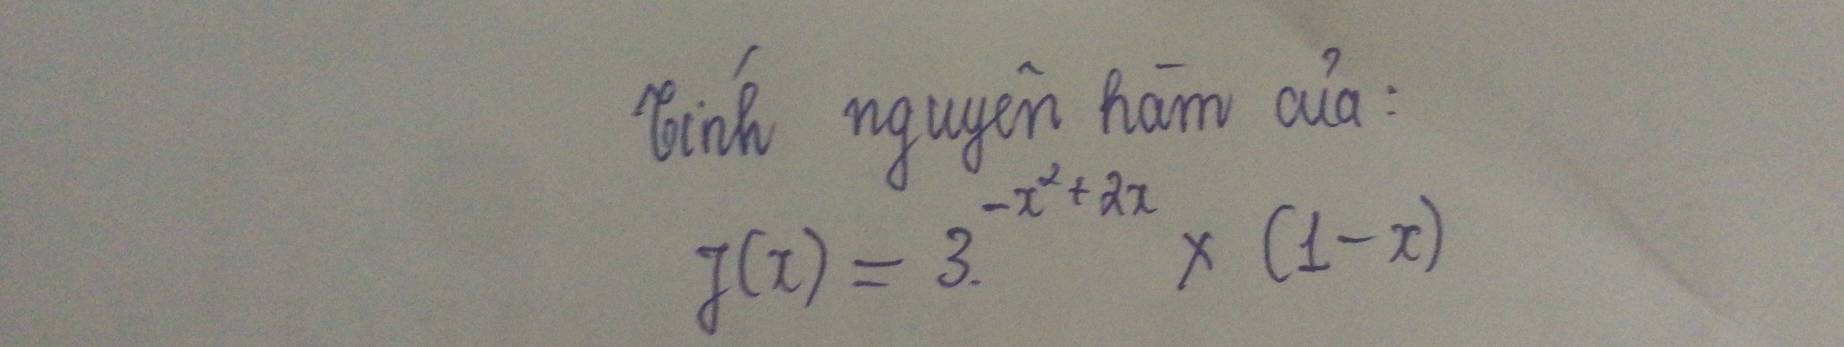 Tính nguyên hàm của:
f(x) = 3.^{-x²+2x} × (1-x)